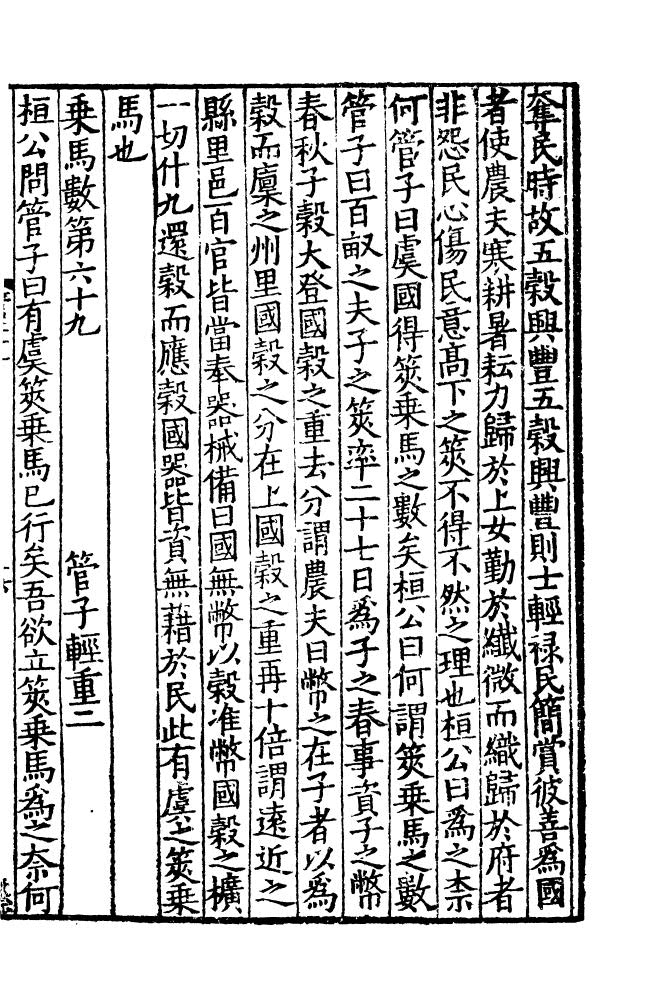 奪民時故五穀興豐五穀興豐則士輕祿民簡賞彼善爲國
者使農夫寒耕暑耘力歸於上女勤於纖微而織歸於府者
非怨民心傷民意髙下之筴不得不然之理也桓公曰爲之柰
何管子曰虞國得筴乗馬之數矣桓公曰何謂筴乗馬之數
管子曰百畝之夫子之筴率二十七日爲子之春事資子之幣
春秋子穀大登國穀之重去分謂農夫曰幣之在子者以爲
穀而廩之州里國穀之分在上國穀之重再十倍謂逺近之
縣里邑百官皆當奉器械備曰國無幣以穀准幣國穀之櫎
一切什九還穀而應穀國器皆資無藉於民此有虞之筴乗
馬也
乗馬數第六十九 管子輕重二
桓公問管子曰有虞筴乗馬已行矣吾欲立筴乗馬爲之柰何